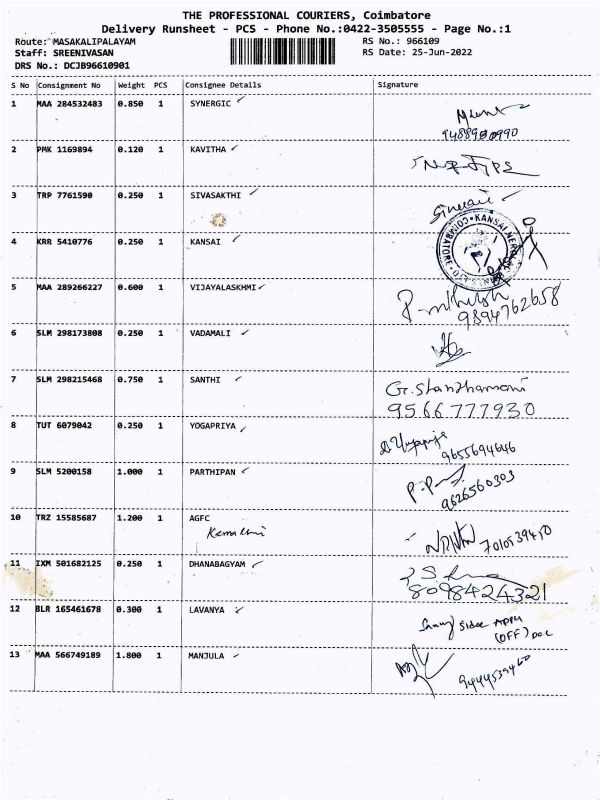 THE PROFESSIONAL COURIERS, Coimbatore
Delivery Runsheet - PCS - Phone No.:0422-3505555 - Page No.:1
Route: MASAKALIPALAYAM
Staff: SREENIVASAN
DRS No.: DCJB96610901
RS No.: 966109
RS Date: 25-Jun-2022
S No Consignment No Weight PCS Consignee Details Signature
1 MAA 284532483 0.850 1 SYNERGIC
2 PMK 1169894 0.120 1 KAVITHA
3 TRP 7761590 0.250 1 SIVASAKTHI
4 KRR 5410776 0.250 1 KANSAI
5 MAA 289266227 0.600 1 VIJAYALASKHMI
9894762658
6 SLM 298173808 0.250 1 VADAMALI
7 SLM 298215468 0.750 1 SANTHI
9566777930
8 TUT 6079042 0.250 1 YOGAPRIYA
9655694646
9 SLM 5200158 1.000 1 PARTHIPAN
9626560303
10 TRZ 15585687 1.200 1 AGFC
7010539450
11 IXM 501682125 0.250 1 DHANABAGYAM
8098424321
12 BLR 165461678 0.300 1 LAVANYA
13 MAA 566749189 1.800 1 MANJULA
9444539460